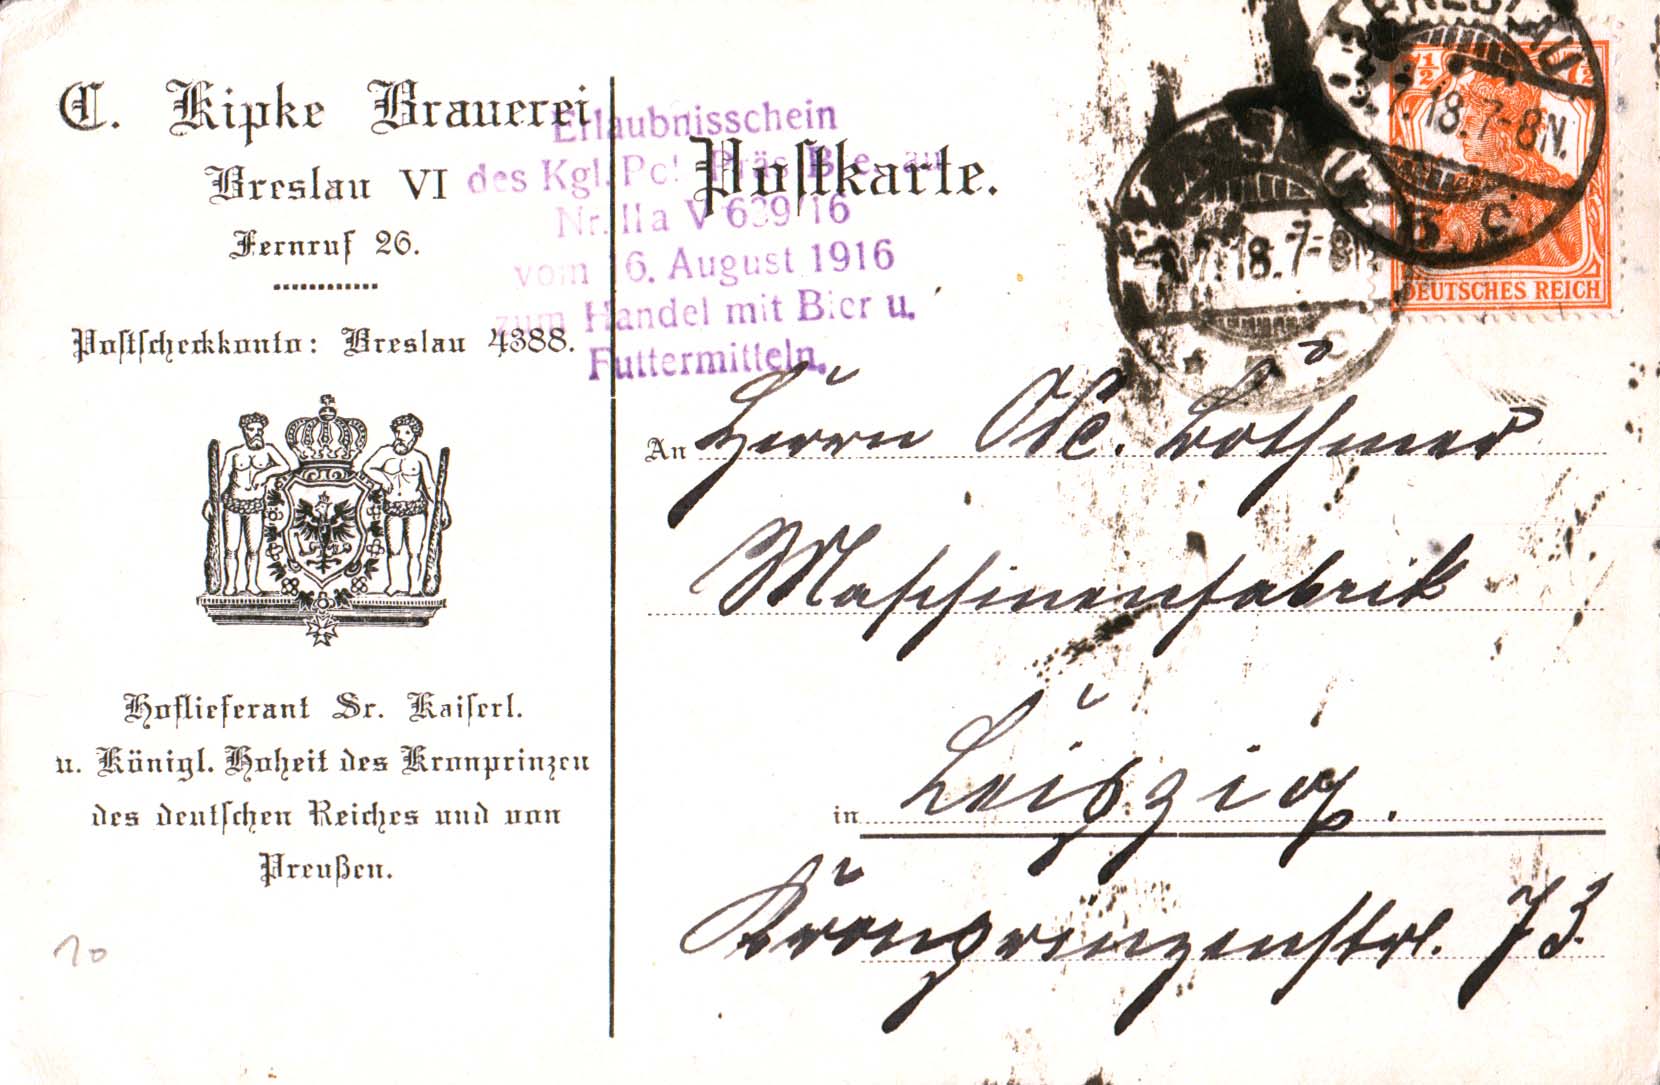 C. Kipke Brauerei
Breslau VI
Fernruf 26.
Postscheckkonto: Breslau 4388.
Hoflieferant Sr. Kaiserl.
u. Königl. Hoheit des Kronprinzen
des deutschen Reiches und von
Preußen.
10
Erlaubnisschein
des Kgl. Präs
Nr. II a V 639/16
vom 6. August 1916
zum Handel mit Bier u.
Futtermitteln.
Postkarte.
BRESLAU
7.18.7-8N.
7.18.7-8N
7½
DEUTSCHES REICH
An Herrn
Maschinenfabrik
in Leipzig.
Kronprinzenstr. 73.